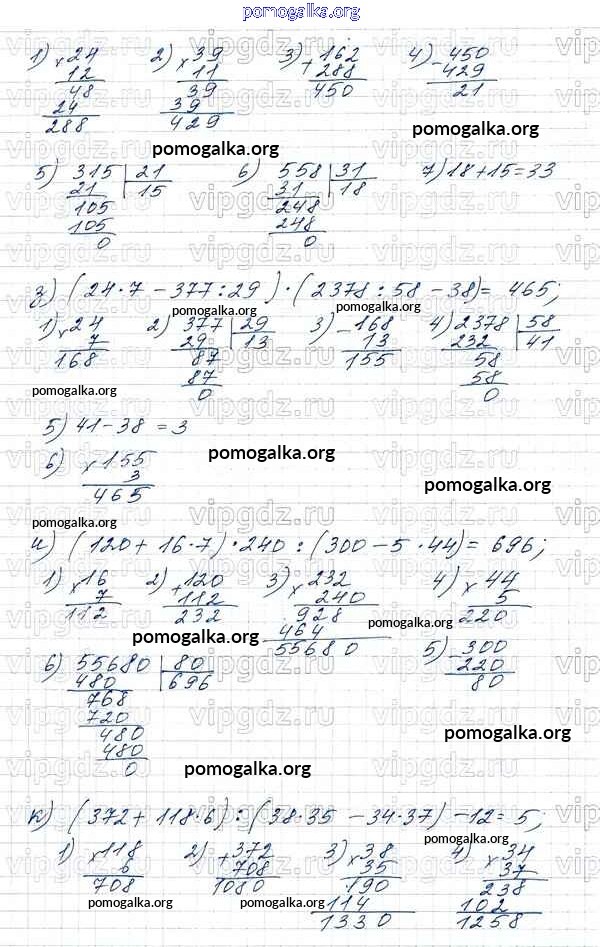 pomogalka.org
1) × 24 2) × 39 3) + 162 4) - 450
12 11 288 429
48 39 450 21
24 39
288 429
pomogalka.org
pomogalka.org
5) 315 | 21 6) 558 | 31 7) 18+15=33
21 15 31 18
105 248
105 248
0 0
з) (24·7 - 377:29)·(2378:58 - 38)= 465;
pomogalka.org pomogalka.org
1) × 24 2) 377 | 29 3) - 168 4) 2378 | 58
7 29 13 13 232 41
168 87 155 58
87 58
0 0
pomogalka.org
5) 41-38 = 3
pomogalka.org
6) × 155
3
465
pomogalka.org
pomogalka.org
и) (120+ 16·7)·240 : (300-5·44)= 696;
1) × 16 2) + 120 3) × 232 4) × 44
7 112 240 5
112 232 928 220
464
55680
pomogalka.org
pomogalka.org
5) - 300
220
80
6) 55680 | 80
480 696
768
720
480
480
0
pomogalka.org
pomogalka.org
к) (372+ 118·6) : (38·35 - 34·37) -12= 5;
pomogalka.org
1) × 118 2) + 372 3) × 38 4) × 34
6 708 35 37
708 1080 190 238
114 102
1330 1258
pomogalka.org
pomogalka.org
vipgdz.ru